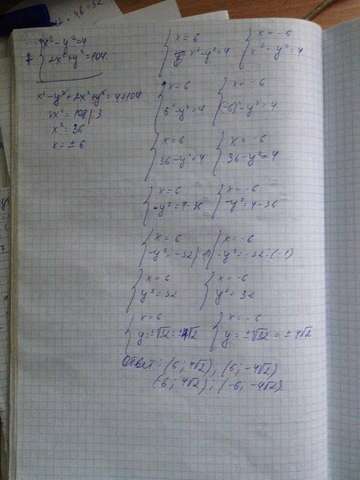 x² - y² = 4
2x² + y² = 104
x² - y² + 2x² + y² = 4 + 104
3x² = 108 | :3
x² = 36
x = ± 6
x = 6
x² - y² = 4
x = - 6
x² - y² = 4
x = 6
6² - y² = 4
x = - 6
(-6)² - y² = 4
x = 6
36 - y² = 4
x = - 6
36 - y² = 4
x = 6
- y² = 4 - 36
x = - 6
- y² = 4 - 36
x = 6
- y² = -32
x = - 6
- y² = -32 · (-1)
x = 6
y² = 32
x = -6
y² = 32
x = 6
y = ±√32 = ±4√2
x = - 6
y = ±√32 = ± 4√2
Ответ: (6; 4√2), (6; -4√2)
(6; 4√2), (-6; -4√2)